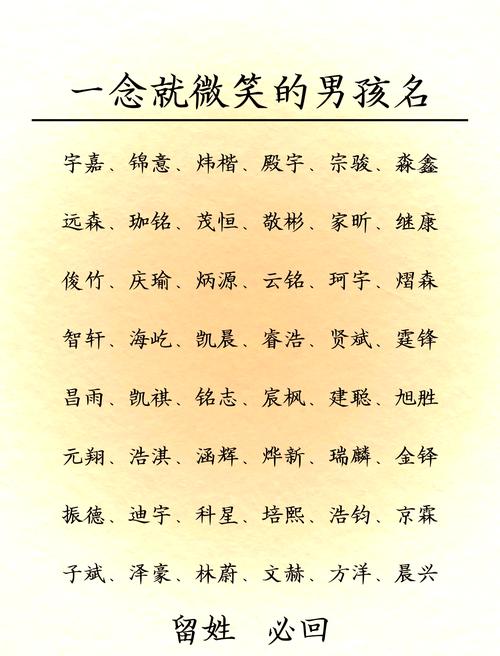 一念就微笑的男孩名
宇嘉、锦意、炜楷、殿宇、宗骏、淼鑫
远森、珈铭、茂恒、敬彬、家昕、继康
俊竹、庆瑜、炳源、云铭、珂宇、熠森
智轩、海屹、凯晨、睿浩、贤斌、霆锋
昌雨、凯祺、铭志、宸枫、建聪、旭胜
元翔、浩淇、涵辉、烨新、瑞麟、金铎
振德、迪宇、科星、培熙、浩钧、京霖
子斌、泽豪、林蔚、文赫、方洋、晨兴
留姓 必回